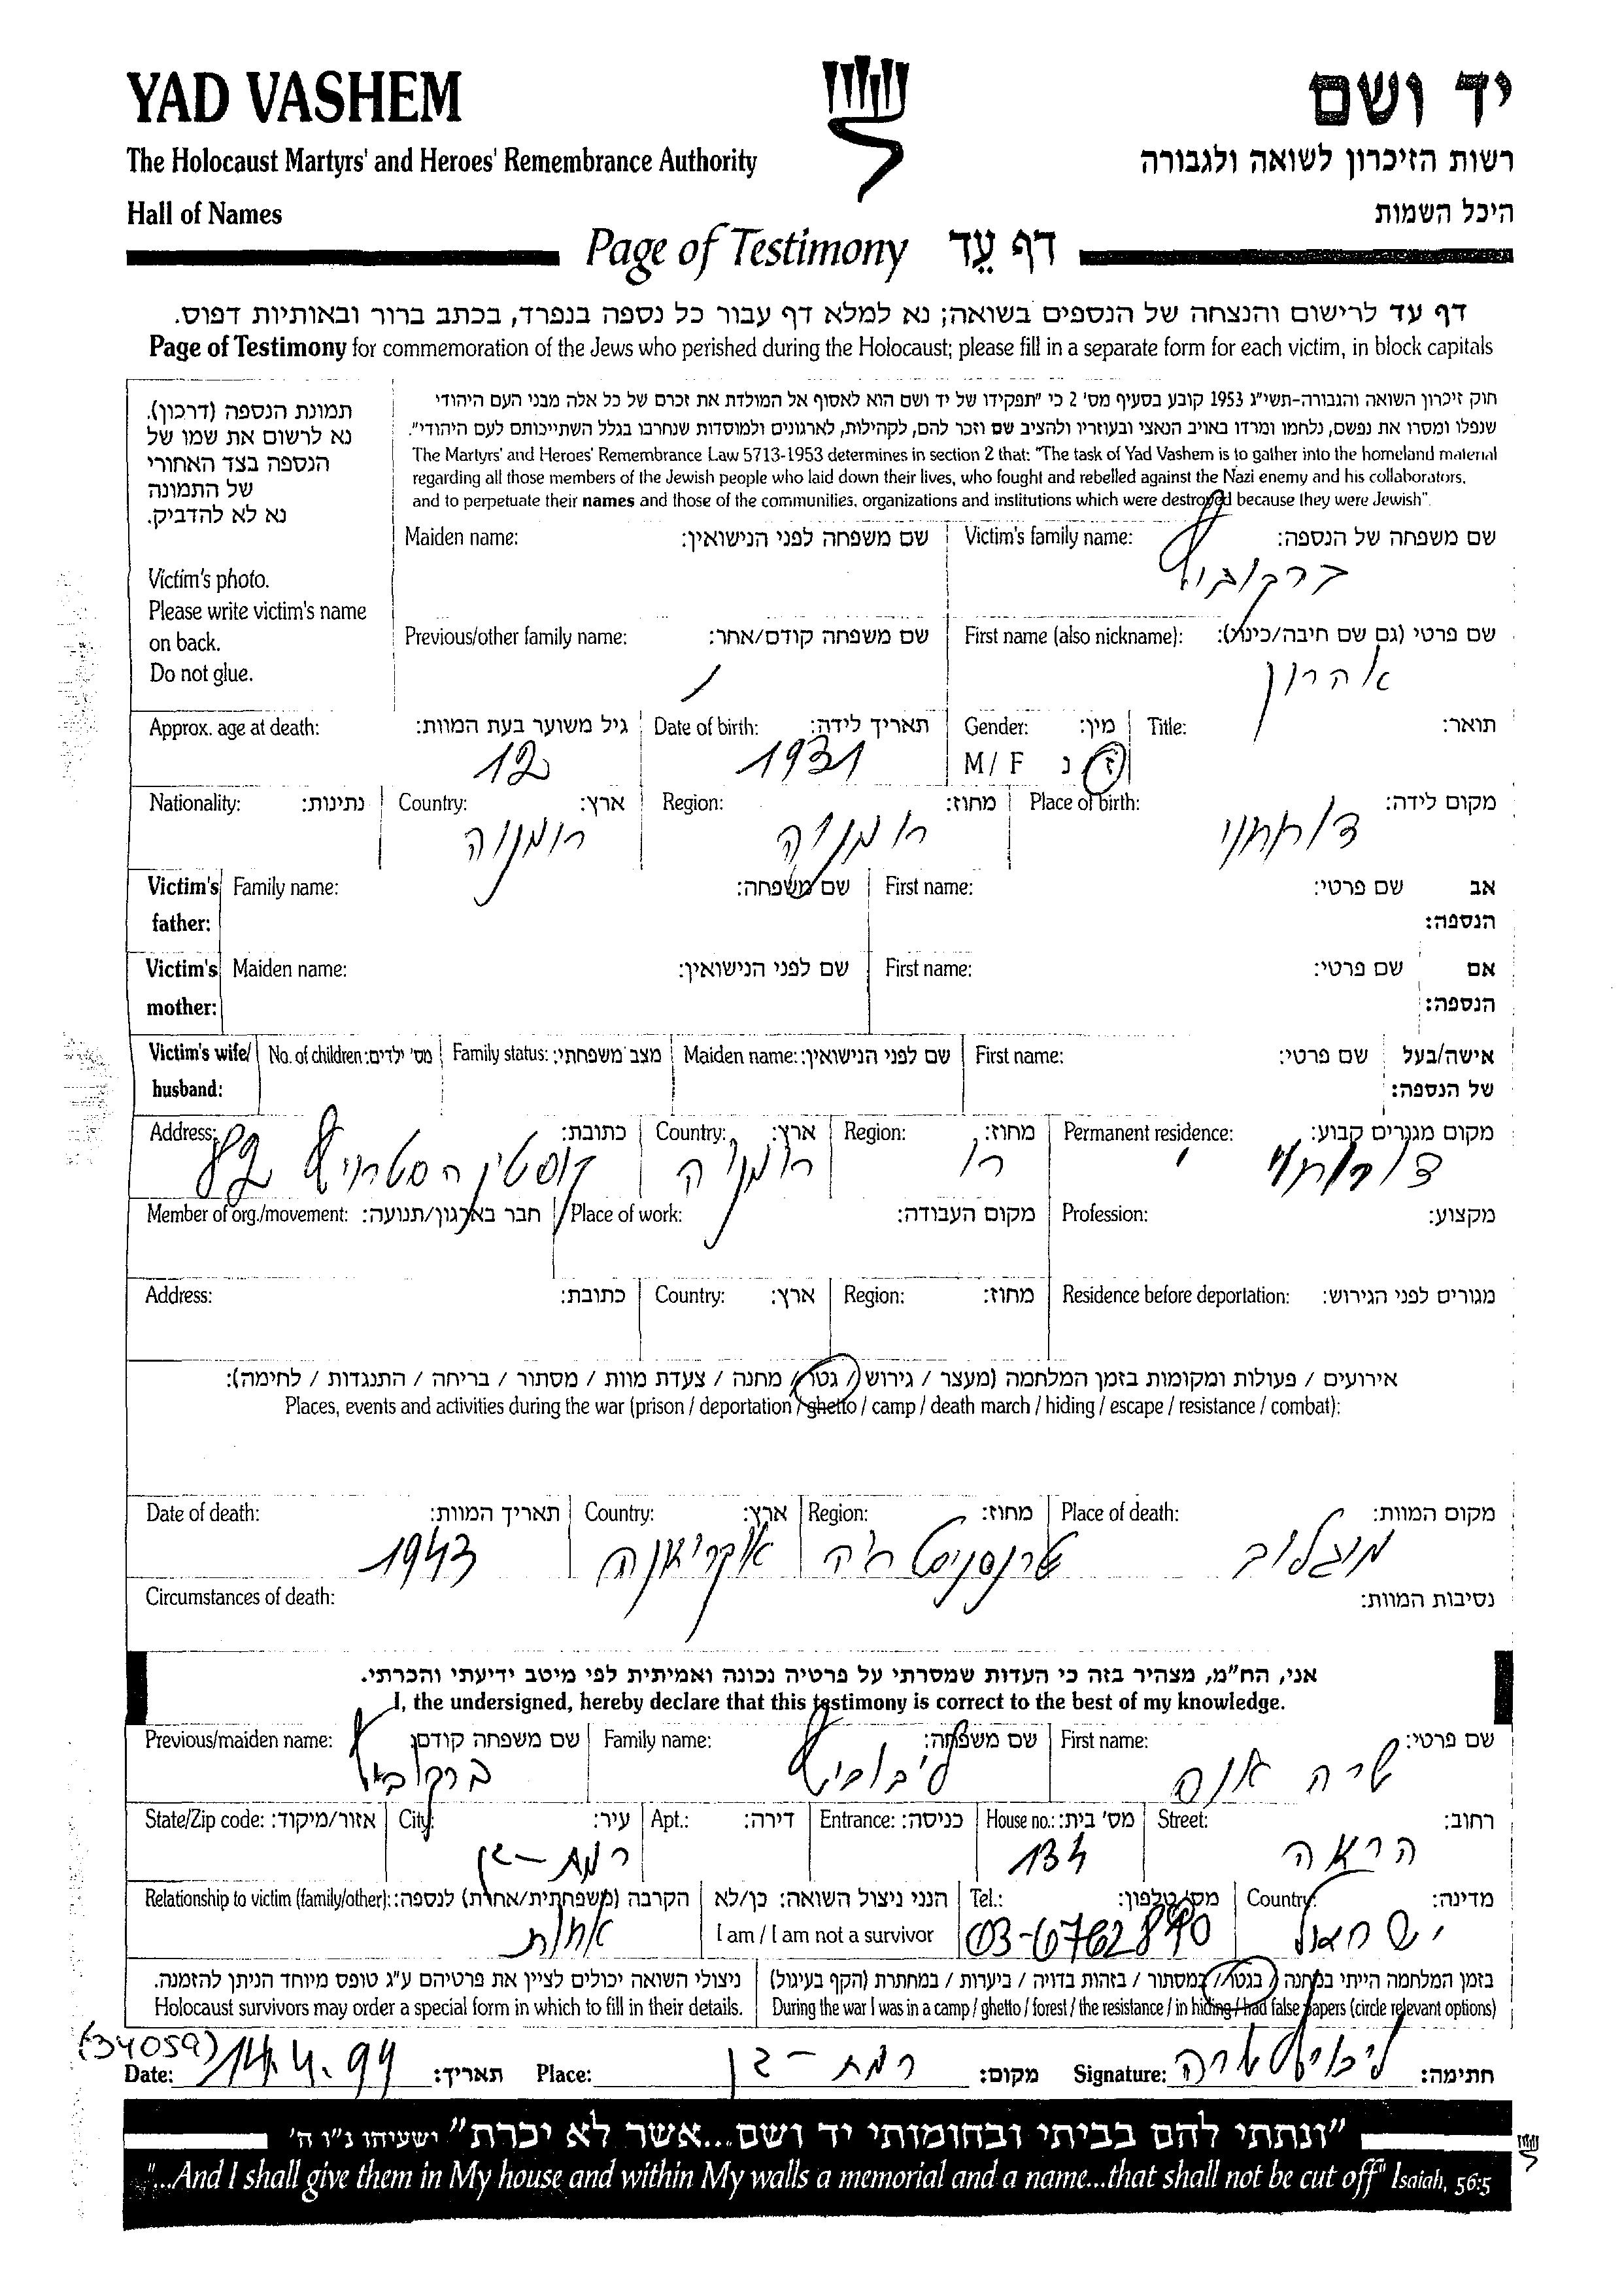 YAD VASHEM
יד ושם
The Holocaust Martyrs' and Heroes' Remembrance Authority
רשות הזיכרון לשואה ולגבורה
Hall of Names
היכל השמות
Page of Testimony דף עֵד
דף עד לרישום והנצחה של הנספים בשואה; נא למלא דף עבור כל נספה בנפרד, בכתב ברור ובאותיות דפוס.
Page of Testimony for commemoration of the Jews who perished during the Holocaust; please fill in a separate form for each victim, in block capitals
תמונת הנספה (דרכון).
נא לרשום את שמו של
הנספה בצד האחורי
של התמונה
נא לא להדביק.
Victim's photo.
Please write victim's name
on back.
Do not glue.
חוק זיכרון השואה והגבורה-תשי"ג 1953 קובע בסעיף מס' 2 כי "תפקידו של יד ושם הוא לאסוף אל המולדת את זכרם של כל אלה מבני העם היהודי
שנפלו ומסרו את נפשם, נלחמו ומרדו באויב הנאצי ובעוזריו ולהציב שם וזכר להם, לקהילות, לארגונים ולמוסדות שנחרבו בגלל השתייכותם לעם היהודי".
The Martyrs' and Heroes' Remembrance Law 5713-1953 determines in section 2 that: "The task of Yad Vashem is to gather into the homeland material
regarding all those members of the Jewish people who laid down their lives, who fought and rebelled against the Nazi enemy and his collaborators,
and to perpetuate their names and those of the communities, organizations and institutions which were destroyed because they were Jewish".
Maiden name: שם משפחה לפני הנישואין: Victim's family name: שם משפחה של הנספה:
ברקוביץ
Previous/other family name: שם משפחה קודם/אחר: First name (also nickname): שם פרטי (גם שם חיבה/כינוי):
אהרון
Approx. age at death: גיל משוער בעת המוות: Date of birth: תאריך לידה: Gender: מין: Title: תואר:
12 1931 M/ F נ ז
Nationality: נתינות: Country: ארץ: Region: מחוז: Place of birth: מקום לידה:
רומניה רומניה דורוחוי
Victim's father: Family name: שם משפחה: First name: שם פרטי: אב הנספה:
Victim's mother: Maiden name: שם לפני הנישואין: First name: שם פרטי: אם הנספה:
Victim's wife/ husband: No. of children: מס' ילדים: Family status: מצב משפחתי: Maiden name: שם לפני הנישואין: First name: שם פרטי: אישה/בעל של הנספה:
Address: כתובת: Country: ארץ: Region: מחוז: Permanent residence: מקום מגורים קבוע:
82 רומניה דורוחוי
Member of org./movement: חבר בארגון/תנועה: Place of work: מקום העבודה: Profession: מקצוע:
Address: כתובת: Country: ארץ: Region: מחוז: Residence before deportation: מגורים לפני הגירוש:
אירועים / פעולות ומקומות בזמן המלחמה (מעצר / גירוש / גטו / מחנה / צעדת מוות / מסתור / בריחה / התנגדות / לחימה):
Places, events and activities during the war (prison / deportation / ghetto / camp / death march / hiding / escape / resistance / combat):
Date of death: תאריך המוות: Country: ארץ: Region: מחוז: Place of death: מקום המוות:
1943 אוקריאנה טרנסניסטריה מוגלוב
Circumstances of death: נסיבות המוות:
אני, הח"מ, מצהיר בזה כי העדות שמסרתי על פרטיה נכונה ואמיתית לפי מיטב ידיעתי והכרתי.
I, the undersigned, hereby declare that this testimony is correct to the best of my knowledge.
Previous/maiden name: שם משפחה קודם: Family name: שם משפחה: First name: שם פרטי:
ברקוביץ ליבוביץ שרה אנה
State/Zip code: אזור/מיקוד: City: עיר: Apt.: דירה: Entrance: כניסה: House no.: מס' בית: Street: רחוב:
רמת-גן 134 הרואה
Relationship to victim (family/other): הקרבה (משפחתית/אחרת) לנספה: הנני ניצול השואה: כן/לא Tel.: מס' טלפון: Country: מדינה:
אחות I am / I am not a survivor 03-6762890 ישראל
ניצולי השואה יכולים לציין את פרטיהם ע"ג טופס מיוחד הניתן להזמנה. בזמן המלחמה הייתי במחנה / בגטו / במסתור / בזהות בדויה / ביערות / במחתרת (הקף בעיגול)
Holocaust survivors may order a special form in which to fill in their details. During the war I was in a camp / ghetto / forest / the resistance / in hiding / had false papers (circle relevant options)
(34059)
Date: 14.4.99 תאריך: Place: רמת-גן מקום: Signature: ליבוביץ שרה חתימה:
"ונתתי להם בביתי ובחומותי יד ושם...אשר לא יכרת" ישעיהו נ"ו ה'
"...And I shall give them in My house and within My walls a memorial and a name...that shall not be cut off" Isaiah, 56:5